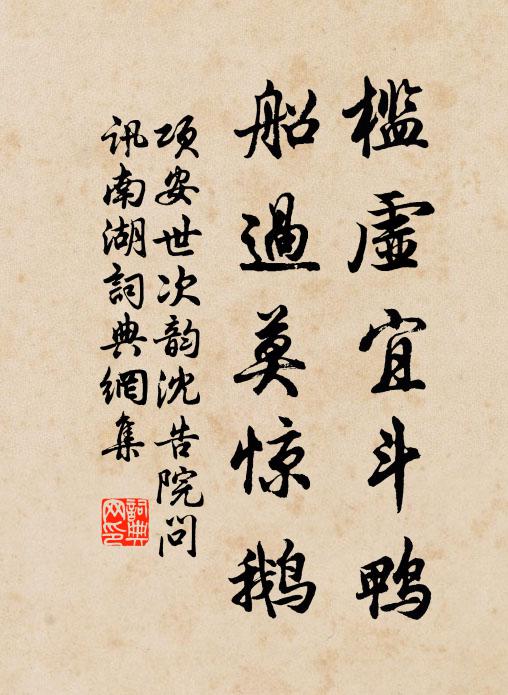 檻虛宜斗鴨
船過莫惊鵝
項安世次韵沈告院問
訊南湖詞典網集
詞典
网印